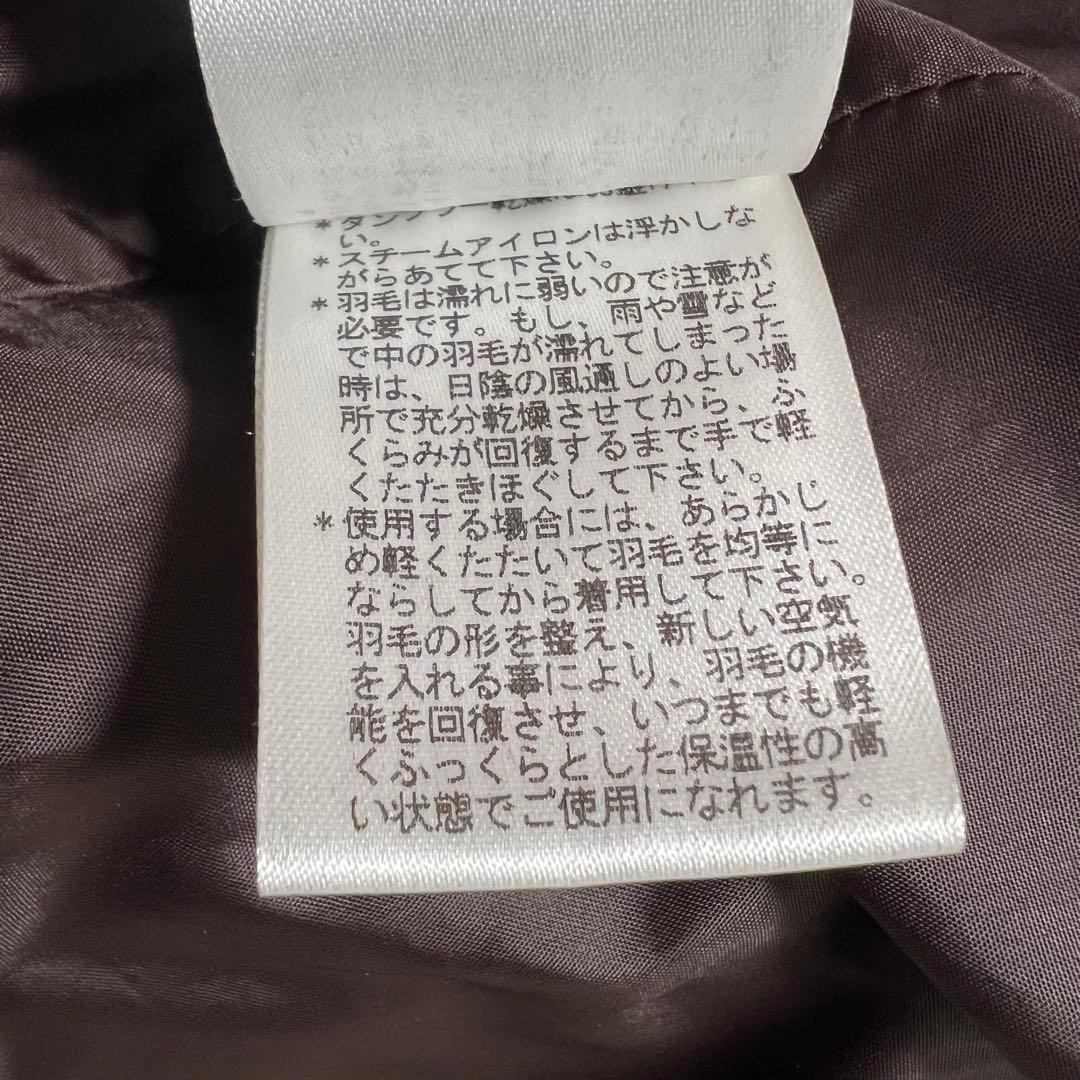 *タンブラー乾燥はお避け下さ
い。
*スチームアイロンは浮かしな
がらあてて下さい。
*羽毛は濡れに弱いので注意が
必要です。もし、雨や雪など
で中の羽毛が濡れてしまった
時は、日陰の風通しのよい場
所で充分乾燥させてから、ふ
くらみが回復するまで手で軽
くたたきほぐして下さい。
*使用する場合には、あらかじ
め軽くたたいて羽毛を均等に
ならしてから着用して下さい。
羽毛の形を整え、新しい空気
を入れる事により、羽毛の機
能を回復させ、いつまでも軽
くふっくらとした保温性の高
い状態でご使用になれます。